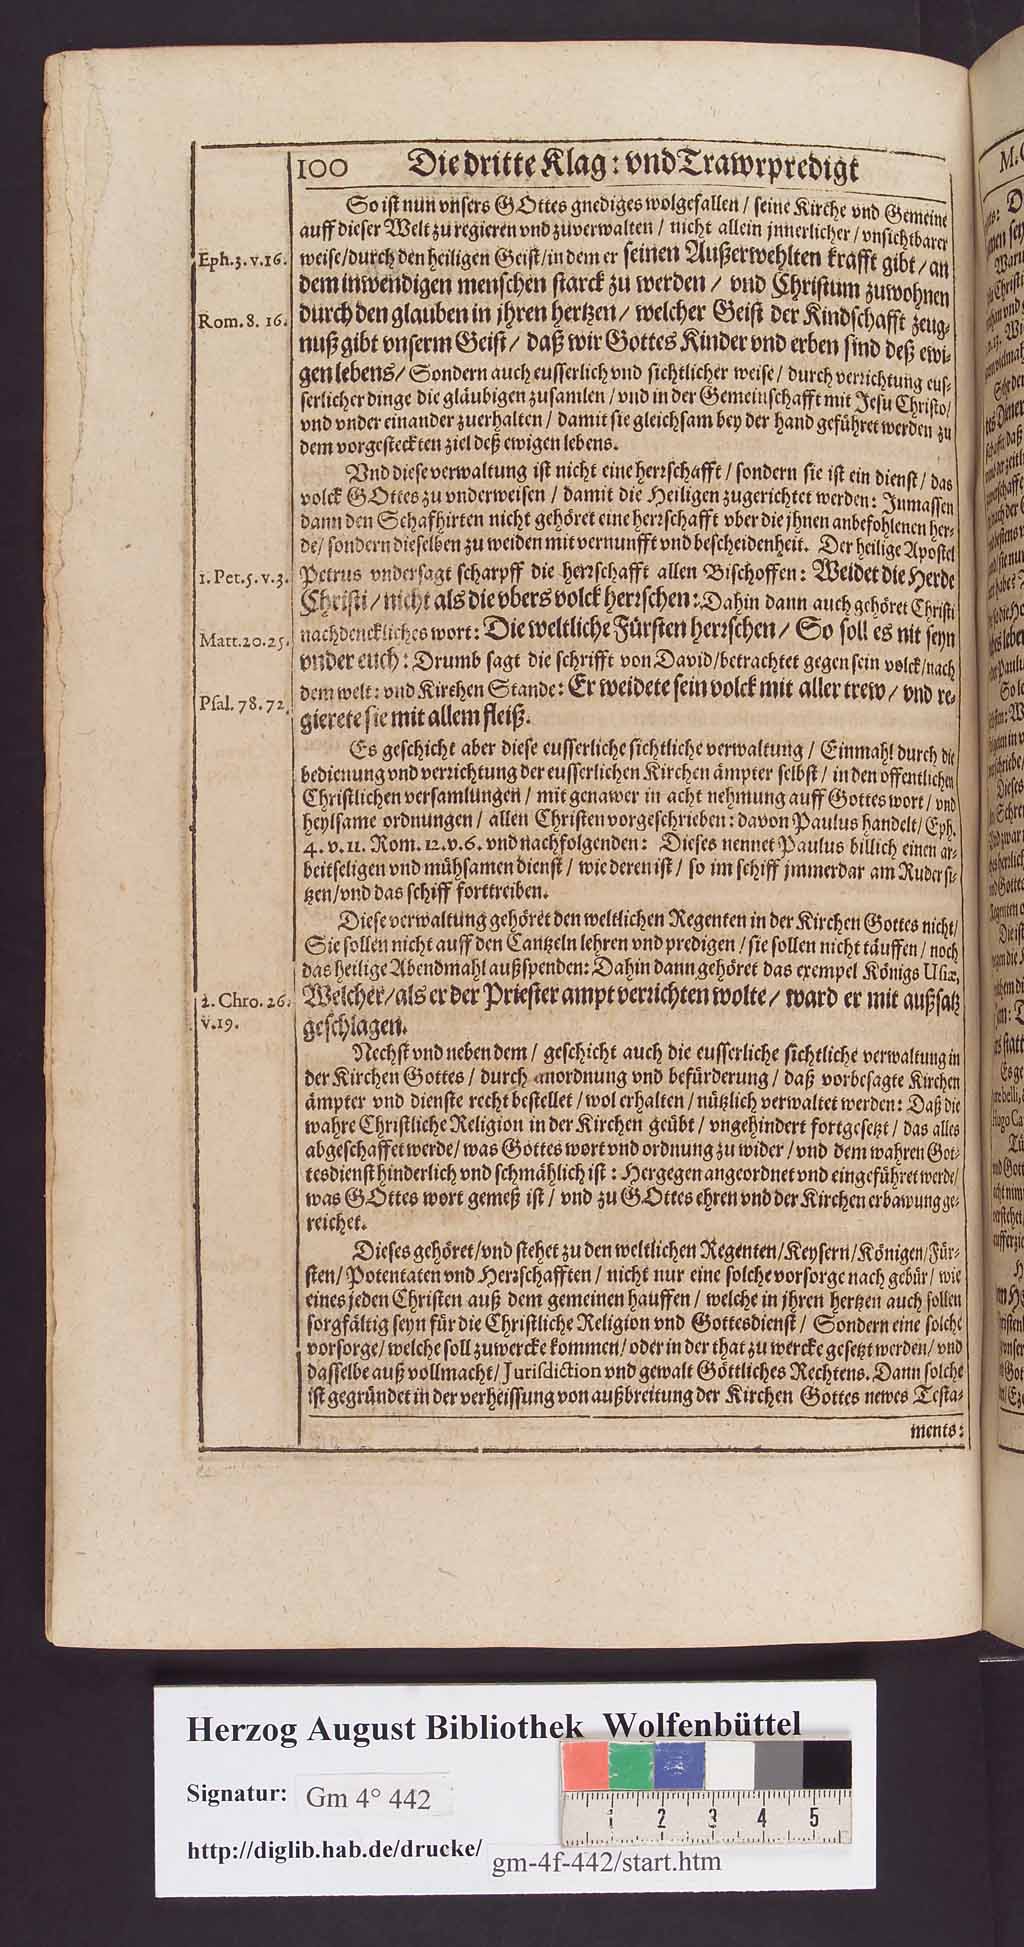 100 Die dritte Klag: vnd Trawrpredigt
So ist nun vnsers GOttes gnediges wolgefallen / seine Kirche vnd Gemeine
auff dieser Welt zu regieren vnd zuverwalten / nicht allein jnnerlicher / vnsichtbarer
Eph.3.v.16. weise/durch den heiligen Geist/in dem er seinen Außerwehlten krafft gibt/an
dem inwendigen menschen starck zu werden / vnd Christum zuwohnen
Rom.8.16. durch den glauben in jhren hertzen/ welcher Geist der Kindschafft zeug-
nuß gibt vnserm Geist / daß wir Gottes Kinder vnd erben sind deß ewi-
gen lebens/ Sondern auch eusserlich vnd sichtlicher weise / durch verrichtung eus-
serlicher dinge die gläubigen zusamlen / vnd in der Gemeinschafft mit Jesu Christo/
vnd vnder einander zuerhalten / damit sie gleichsam bey der hand geführet werden zu
dem vorgesteckten ziel deß ewigen lebens.
Vnd diese verwaltung ist nicht eine herrschafft / sondern sie ist ein dienst / das
volck GOttes zu vnderweisen / damit die Heiligen zugerichtet werden: Inmassen
dann den Schafhirten nicht gehöret eine herrschafft vber die jhnen anbefohlenen her-
de/ sondern dieselben zu weiden mit vernunfft vnd bescheidenheit. Der heilige Apostel
1.Pet.5.v.3. Petrus vndersagt scharpff die herrschafft allen Bischoffen: Weidet die Herde
Christi / nicht als die vbers volck herrschen: Dahin dann auch gehöret Christi
Matt.20.25. nachdenckliches wort: Die weltliche Fürsten herrschen / So soll es nit seyn
vnder euch: Drumb sagt die schrifft von David/betrachtet gegen sein volck/nach
Psal.78.72. dem welt: vnd Kirchen Stande: Er weidete sein volck mit aller trew / vnd re-
gierete sie mit allem fleiß.
Es geschicht aber diese eusserliche sichtliche verwaltung / Einmahl durch die
bedienung vnd verrichtung der eusserlichen Kirchen ämpter selbst / in den offentlichen
Christlichen versamlungen / mit genawer in acht nehmung auff Gottes wort / vnd
heylsame ordnungen / allen Christen vorgeschrieben: davon Paulus handelt/ Eph.
4. v. 11. Rom. 12. v. 6. vnd nachfolgenden: Dieses nennet Paulus billich einen ar-
beitseligen vnd mühsamen dienst / wie deren ist / so im schiff jmmerdar am Ruder si-
tzen/vnd das schiff forttreiben.
Diese verwaltung gehöret den weltlichen Regenten in der Kirchen Gottes nicht/
Sie sollen nicht auff den Cantzeln lehren vnd predigen / sie sollen nicht täuffen / noch
das heilige Abendmahl außspenden: Dahin dann gehöret das exempel Königs Usiæ,
2. Chro. 26. Welcher/als er der Priester ampt verrichten wolte/ ward er mit außsatz
v.19. geschlagen.
Nechst vnd neben dem / geschicht auch die eusserliche sichtliche verwaltung in
der Kirchen Gottes / durch anordnung vnd befürderung / daß vorbesagte Kirchen
ämpter vnd dienste recht bestellet / wol erhalten / nützlich verwaltet werden: Daß die
wahre Christliche Religion in der Kirchen geübt / vngehindert fortgesetzt / das alles
abgeschaffet werde/ was Gottes wort vnd ordnung zu wider / vnd dem wahren Got-
tesdienst hinderlich vnd schmählich ist: Hergegen angeordnet vnd eingeführet werde/
was GOttes wort gemeß ist / vnd zu GOttes ehren vnd der Kirchen erbawung ge-
reichet.
Dieses gehöret/vnd stehet zu den weltlichen Regenten/Keysern/Königen/Für-
sten/ Potentaten vnd Herrschafften / nicht nur eine solche vorsorge nach gebür / wie
eines jeden Christen auß dem gemeinen hauffen / welche in jhren hertzen auch sollen
sorgfältig seyn für die Christliche Religion vnd Gottesdienst / Sondern eine solche
vorsorge/ welche soll zuwercke kommen/ oder in der that zu wercke gesetzt werden/ vnd
dasselbe auß vollmacht/ Jurisdiction vnd gewalt Göttliches Rechtens. Dann solche
ist gegründet in der verheissung von außbreitung der Kirchen Gottes newes Testa-
ments:
Herzog August Bibliothek Wolfenbüttel
Signatur: Gm 4° 442
http://diglib.hab.de/drucke/ gm-4f-442/start.htm
1 2 3 4 5